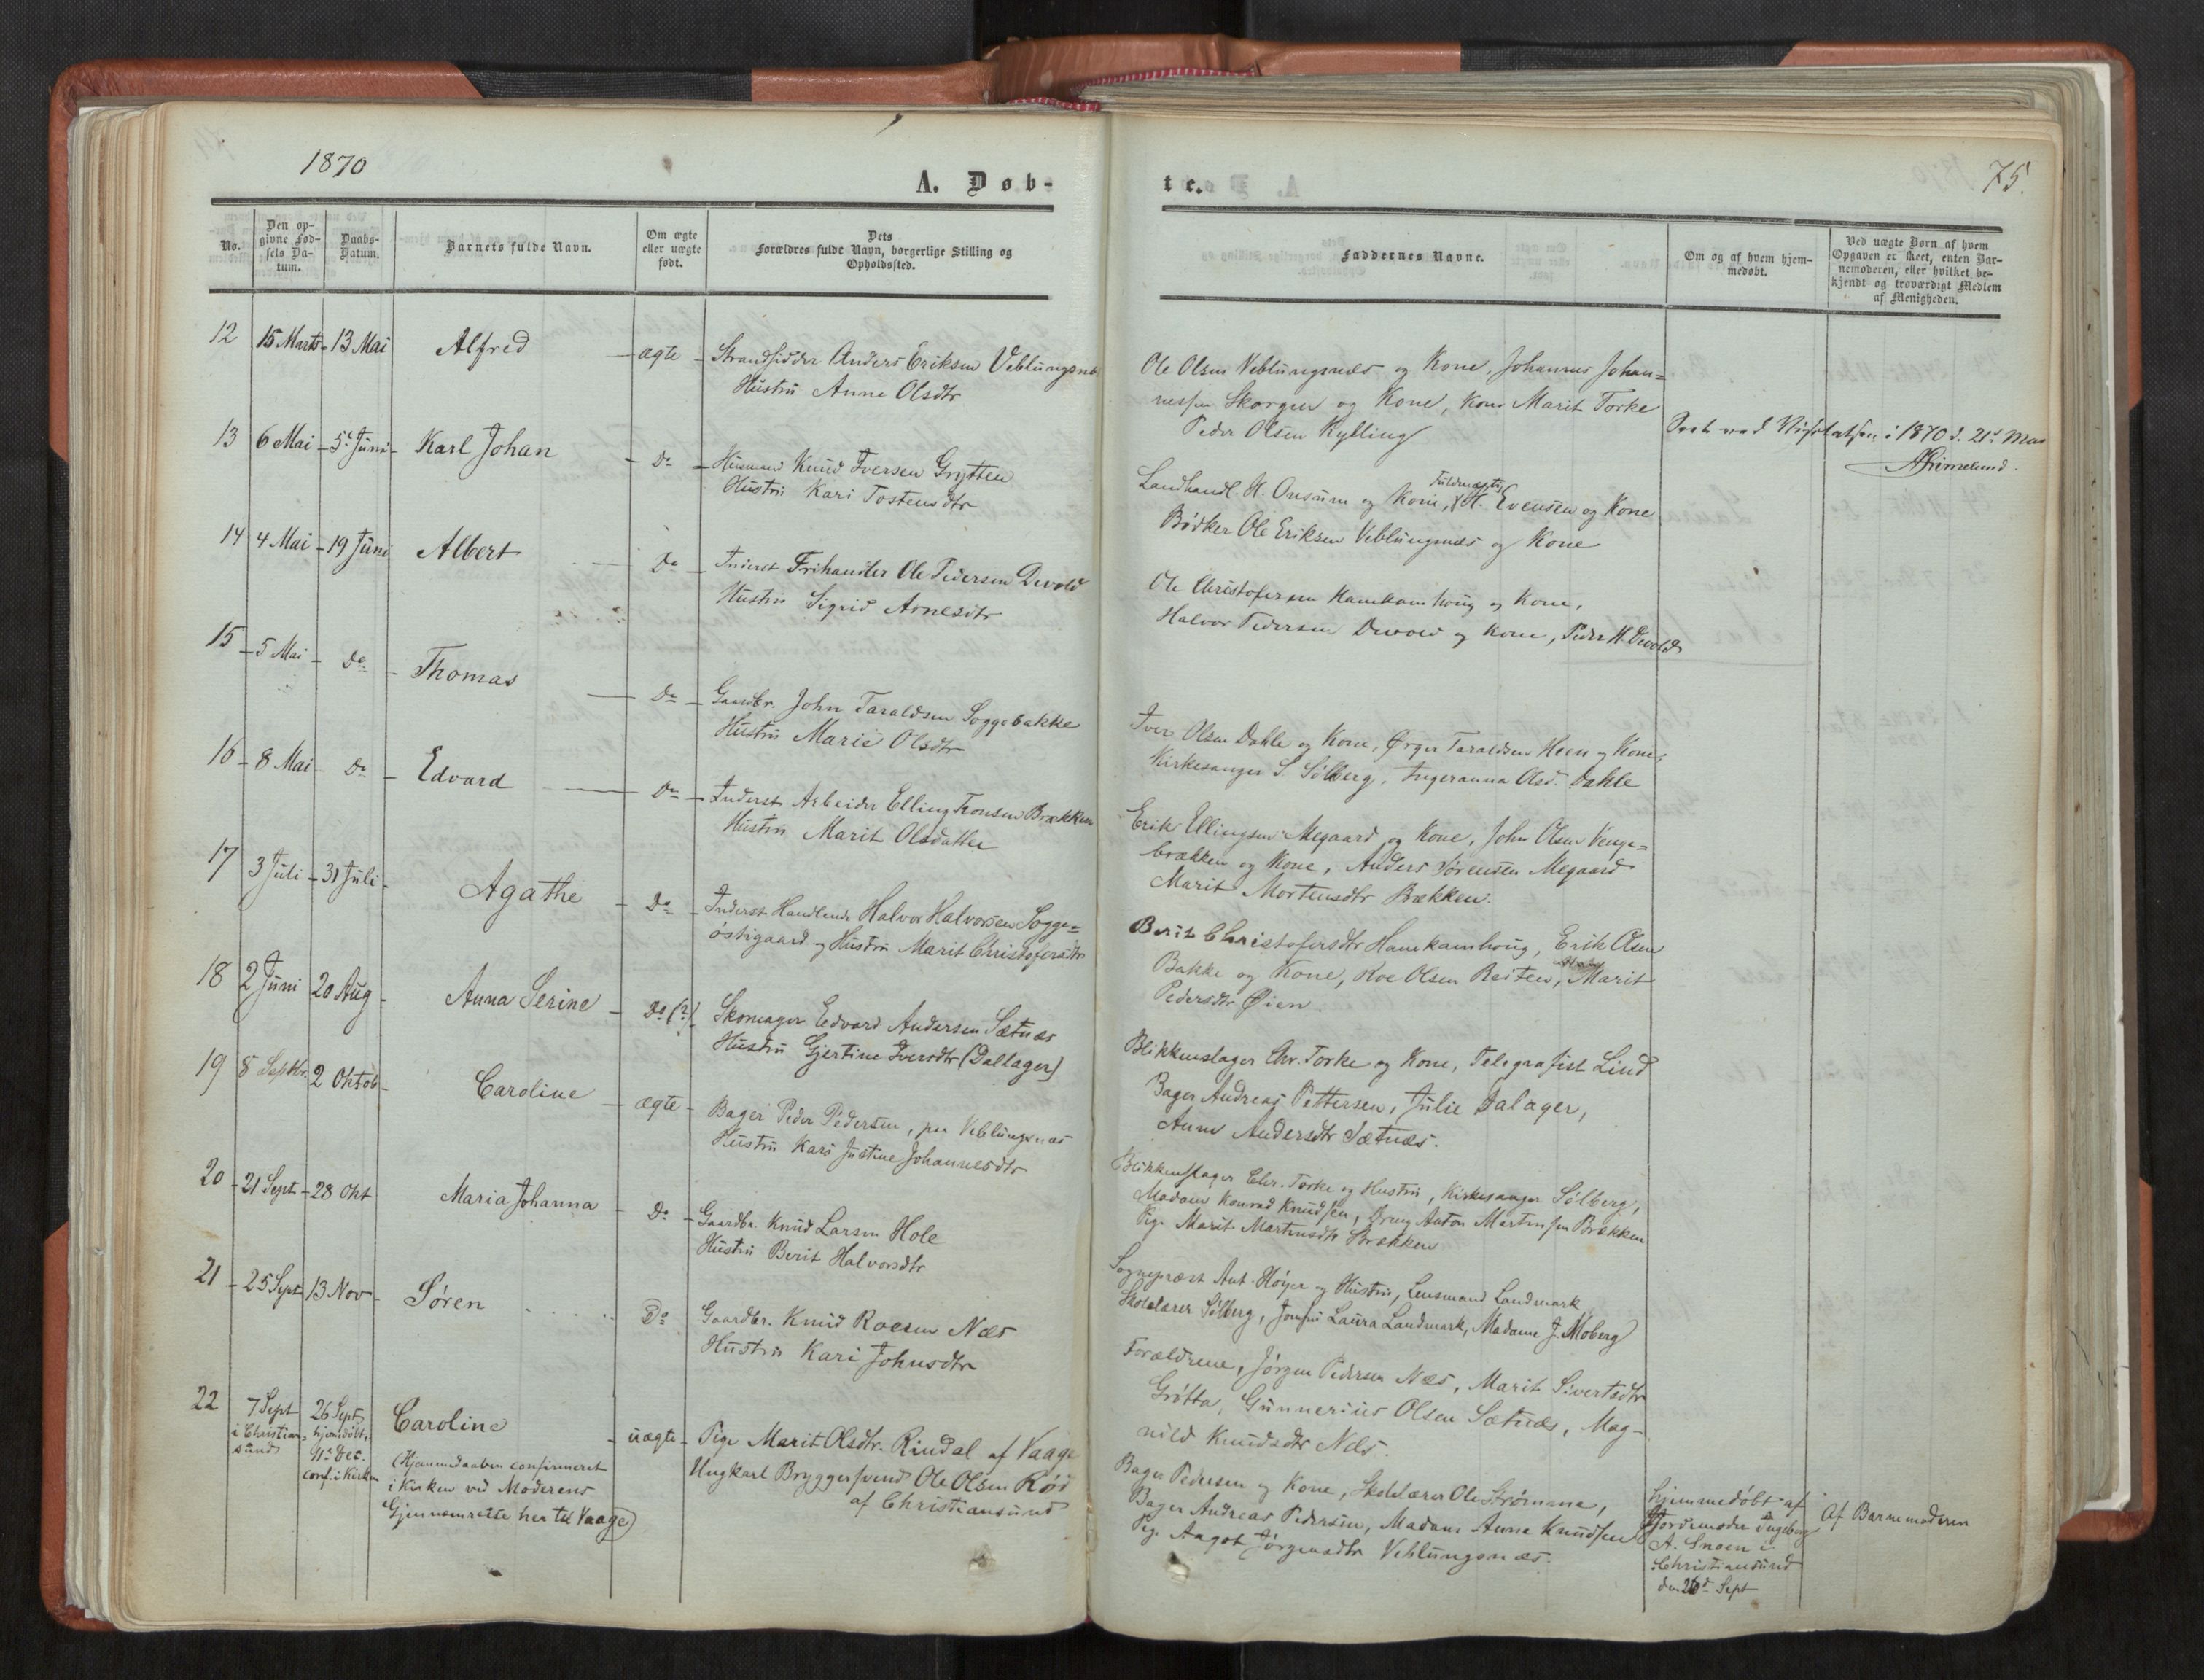 1870
A. Døb-
No.
Den op-
givne Fød-
sels Da-
tum.
Daabs-
Datum.
Barnets fulde Navn.
Om ægte
eller uægte
født.
Dets
Forældres fulde Navn, borgerlige Stilling og
Opholdssted.
12 15 Marts - 13 Mai Alfred - ægte - Strandsidder Anders Eriksen Veblungsnæs
Hustru Anne Olsdtr
13 6 Mai - 5te Juni - Karl Johan - Do - Husmand Knud Iversen Grytten
Hustru Kari Tostensdtr
14 4 Mai - 19 Juni Albert - Do - Inderst Frihandler Ole Pedersen Devold
Hustru Sigrid Arnesdtr
15 - 5 Mai - Do - Thomas - Do - Gaardbr. John Taraldsen Soggebakke
Hustru Marie Olsdtr
16 - 8 Mai - Do - Edvard - Do - Inderst Arbeider Elling Tronsen Brækken
Hustru Marit Olsdatter
17 3 Juli - 31 Juli - Agathe - Do - Inderst Handlende Halvor Halvorsen Sogge=
østigaard og Hustru Marit Christofersdtr
18 2 Juni 20 Aug - Anna Serine - Do (?) Skomager Edvard Andersen Sætnæs
Hustru Gjertine Iversdtr (Dallager)
19 8 Septbr. 2 Oktob - Caroline - ægte - Bager Peder Pedersen, paa Veblungsnæs
Hustru Kari Justine Johannesdtr
20 - 21 Sept - 28 Okt Maria Johanna - Do - Gaardbr. Knud Larsen Hole
Hustru Berit Halvorsdtr
21 - 25 Sept 13 Nov - Søren Do Gaardbr. Knud Roesen Næs
Hustru Kari Johnsdtr
22 7 Sept
i Christian=
sund
26 Sept
hjemdøbt,
11te Dec.
conf. i Kirken
Caroline
(Hjemmedaaben confirmeret
i Kirken ved Moderens
Gjennemreise her til Vaage)
- uægte - Pige Marit Olsdtr. Rindal af Vaage
Ungkarl Bryggersvend Ole Olsen Röd
af Christiansund
te.
75.
Faddernes Navne.
Om og af hvem hjem-
medøbt.
Ved uægte Børn af hvem
Opgaven er skeet, enten Bar-
nemoderen, eller hvilket be-
kjendt og troværdigt Medlem
af Menigheden.
Ole Olsen Veblungsnæs og Kone, Johannes Johan=
nessen Skorgen og Kone, Kone Marit Torke
Peder Olsen Kylling
Seet ved Visitatsen i 1870 d. 21d Mai
AGrimelund.
Landhandl. H. Onsum og Kone, Fuldmægtig H. Evensen og Kone
Bødker Ole Eriksen Veblungsnæs og Kone
Ole Christofersen Hanekamhoug og Kone,
Halvor Pedersen Devold og Kone, Peder H. Devold
Iver Olsen Dahle og Kone, Ørger Taraldsen Heen og Kone;
Kirkesanger S. Sølberg, Ingeranna Olsd. Dahle
Erik Ellingsen Megaard og Kone, John Olsen Venge=
brækken og Kone, Anders Sørensen Megaard
Marit Mortensdtr Brækken.
Berit Christofersdtr Hanekamhoug, Erik Olsen
Bakke og Kone, Roe Olsen Reiten, Marit
Pedersdtr Øien.
Blikkenslager Chr. Torke og Kone, Telegrafist Lind
Bager Andreas Pettersen, Julie Dalager,
Anne Andersdtr Sætnæs.
Blikkenslager Chr. Torke og Hustru, Kirkesanger Sølberg,
Madam Konrad Knudsen, Dreng Anton Martinsen Brækken
Pige Marit Martinsdtr Brækken
Sognepræst Ant. Høyer og Hustru, Lensmand Landmark
Skolelærer Sølberg, Jomfru Laura Landmark, Madame J. Moberg
Forældrene, Jørgen Pedersen Næs, Marit Sivertsdtr
Grøtta, Gunnerius Olsen Sætnæs, Mag-
nild Knudsdtr Næs.
Bager Pedersen og Kone, Skolelærer Ole Strømme,
Bager Andreas Pedersen, Madam Anna Knudsen
Pige Aagot Jørgensdtr Veblungsnæs.
hjemmedøbt af
Jordemoder Ingeborg
A. Snoen i
Christiansund
den 26d Sept
Af Barnemoderen